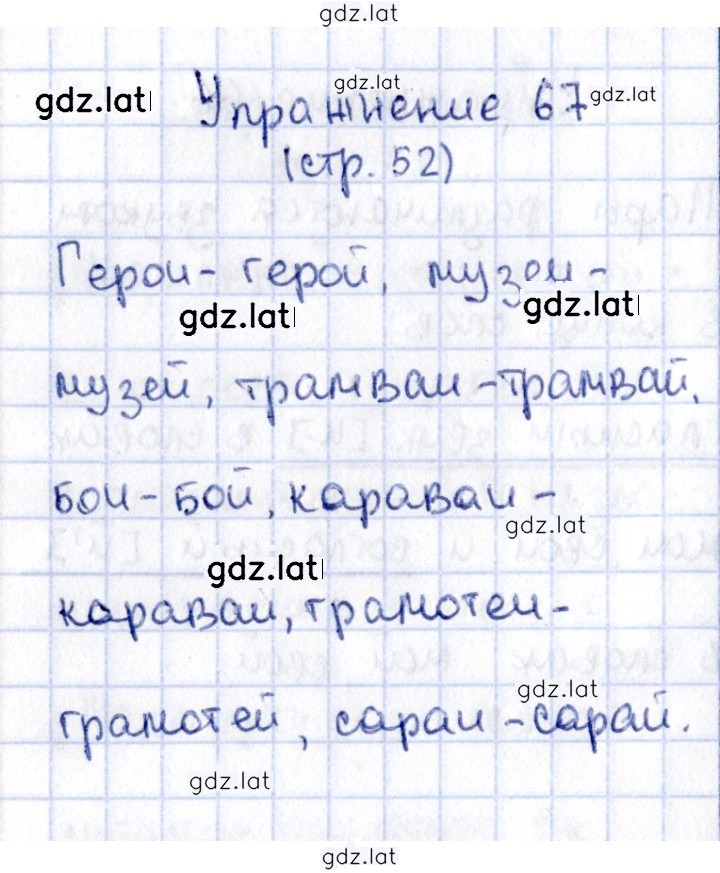 gdz.lat
gdz.lat
gdz.lat Упражнение 67 gdz.lat
(стр. 52)
Герои - герой, музеи -
gdz.lat gdz.lat
музей, трамваи - трамвай,
бои - бой, караваи -
gdz.lat
gdz.lat
каравай, грамотеи -
gdz.lat
грамотей, сараи - сарай.
gdz.lat
gdz.lat